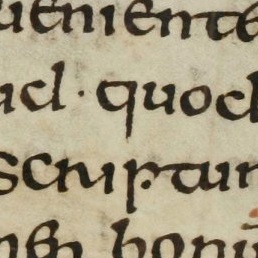 ueniente
ad · quod
scriptur
bonū